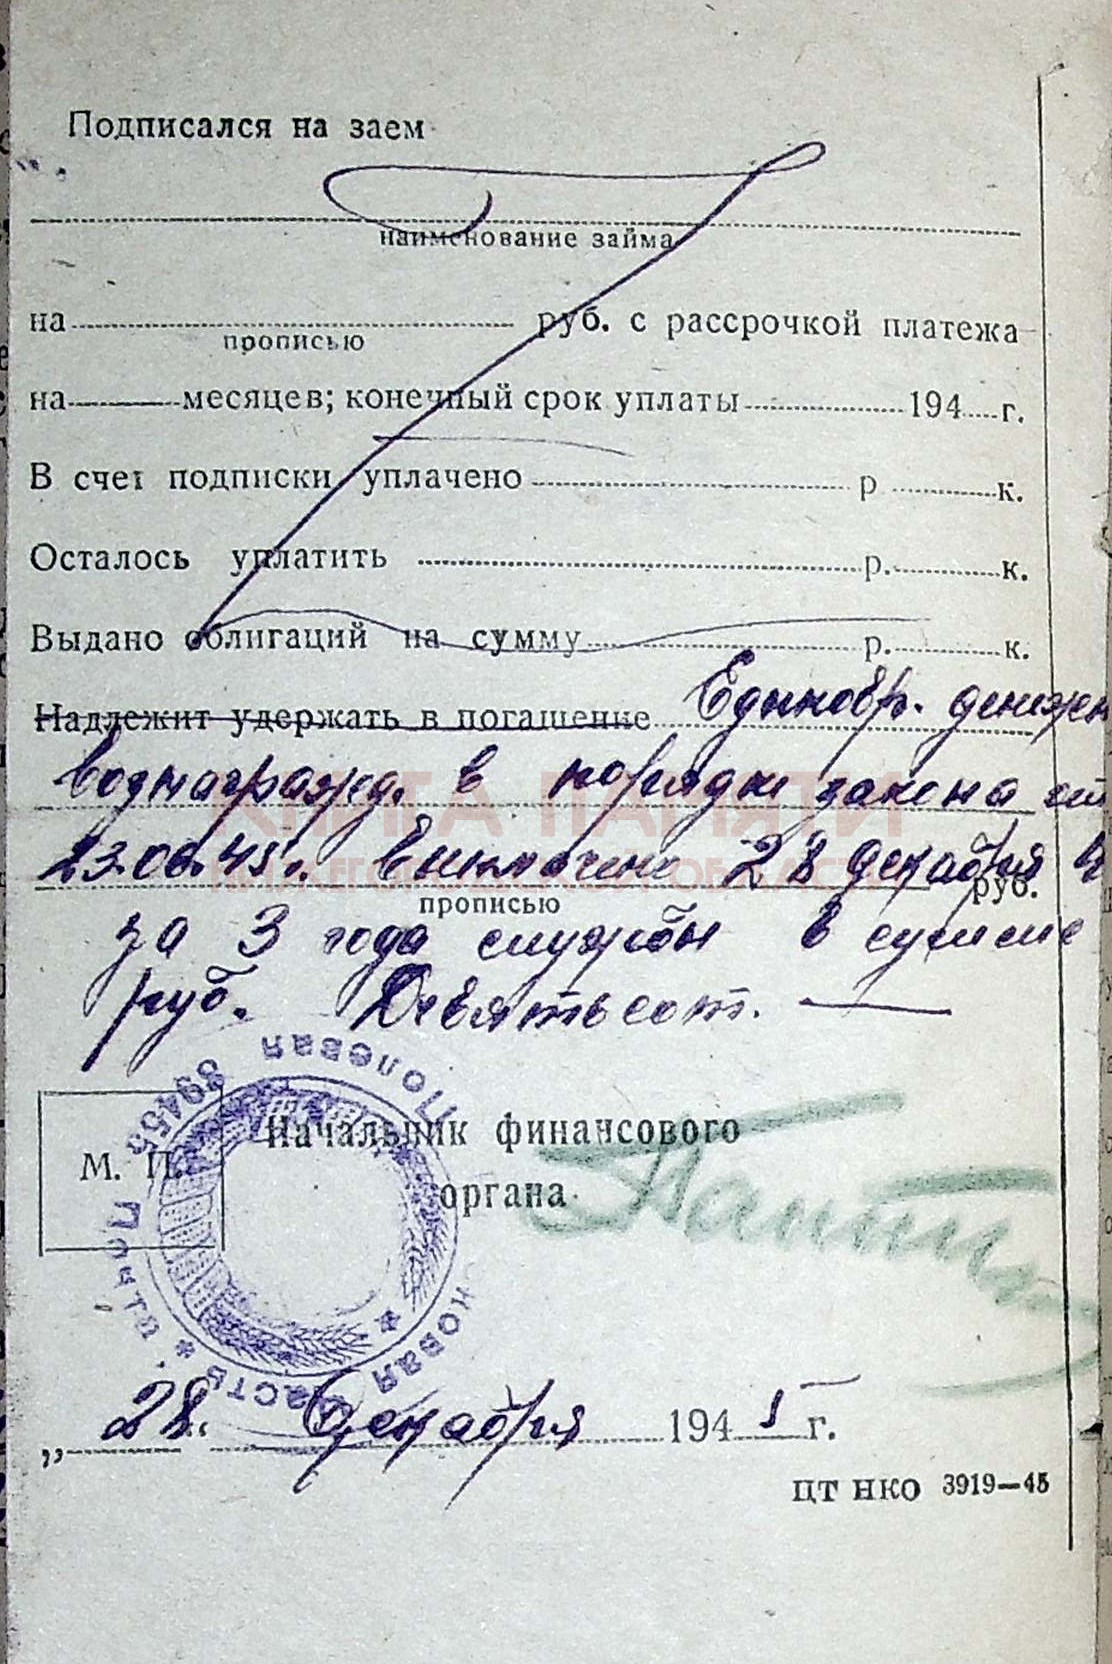 Подписался на заем
наименование займа
на руб. с рассрочкой платежа
прописью
на месяцев; конечный срок уплаты 194 г.
В счет подписки уплачено р к.
Осталось уплатить р. к.
Выдано облигаций на сумму р. к.
Надлежит удержать в погашение Единовр. денежн
вознагражд. в порядке закона от
КНИГА ПАМЯТИ
23.06.45г. выплачено 28 декабря
НИЖЕГОРОДСКОЙ ОБЛАСТИ
руб.
прописью
за 3 года службы в сумме
руб. Девятьсот.
М. П.
Начальник финансового
органа
Полевая
Почта
часть
28. Декабря 1945 г.
ЦТ НКО 3919—45